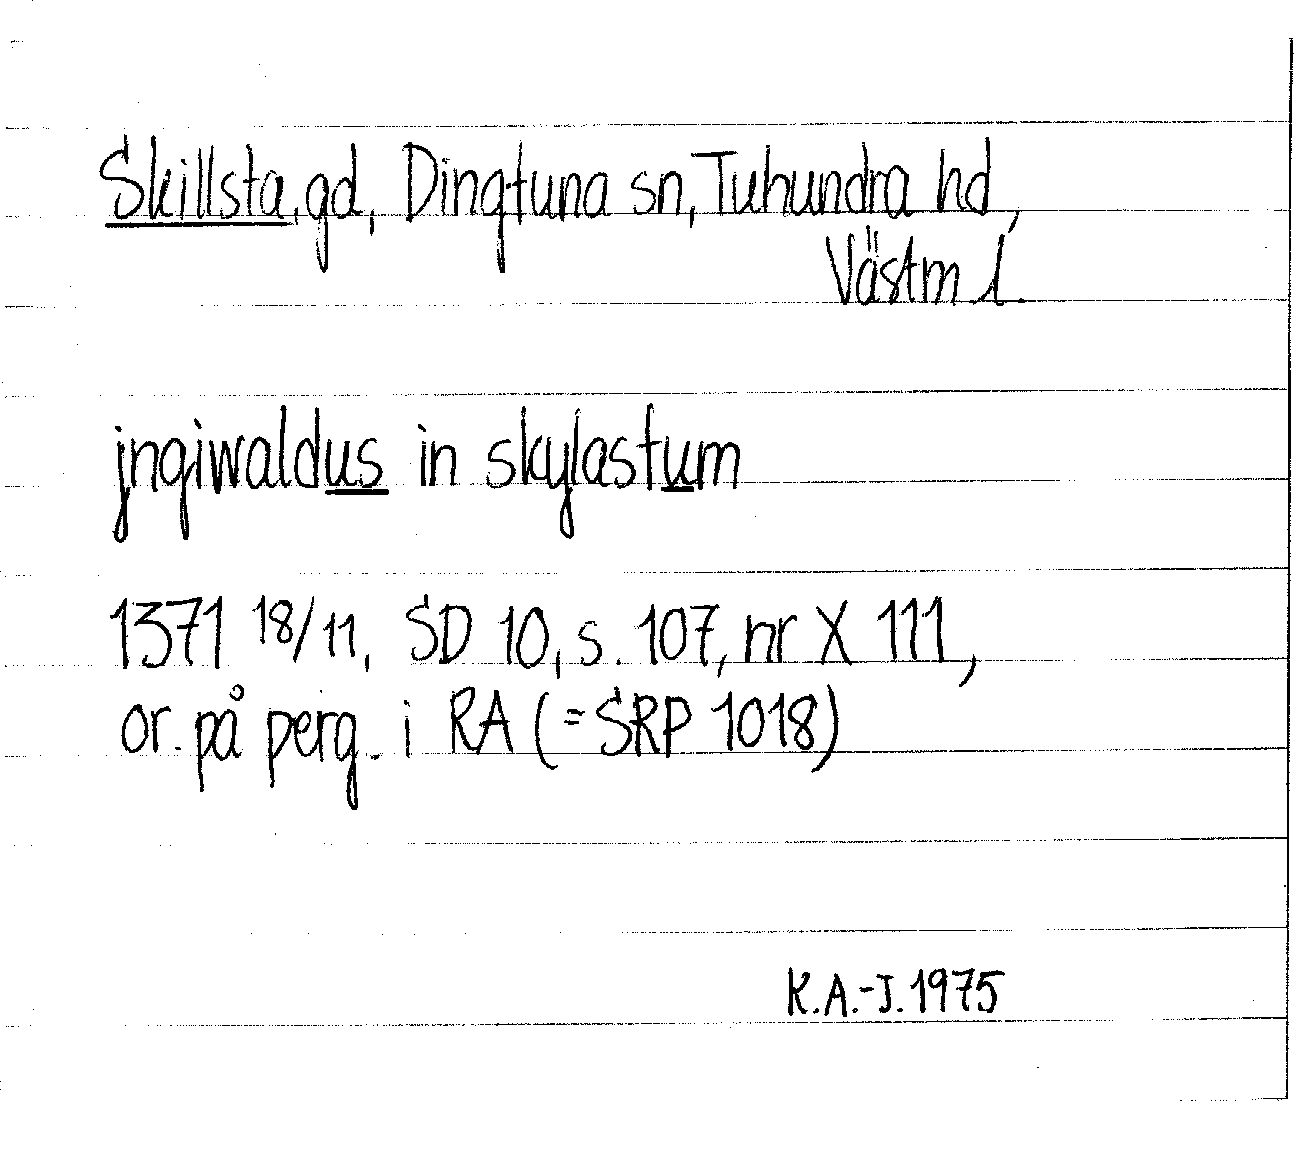 Skillsta, gd, Dingtuna sn, Tuhundra hd,
Västm l.
jngiwaldus in skylastum
1371 18/11, SD 10, s. 107, nr X 111,
or. på perg. i RA (=SRP 1018)
K.A.-J. 1975